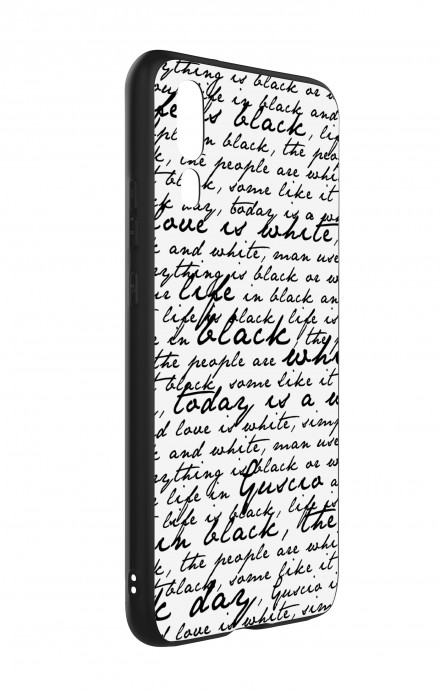 ything is black or w
life in black and
is black, lif
in black, the peo
k, the people are whi
t black, some like it
k way, today is a wh
love is white,
k and white, man use
ything is black or w
ur life in black an
life is black, life is
e in black, the p
the people are whi
t black, some like it
, today is a w
d love is white, simp
k and white, man use
ything is black or w
r life in Guscio a
life is black, life is
in black, the
k, the people are whi
t black, some like it
k day, Guscio i
love is white, sim